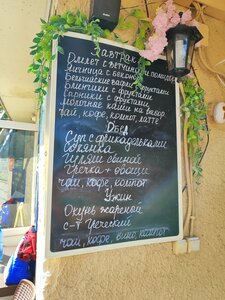 Завтрак
Омлет с ветчиной и помидор
Яичница с беконом
Бельгийские вафли с фруктами
Блинчики с фруктами
Сырники с фруктами
Молочные каши на выбор
Чай, кофе, компот, латте
Обед
Суп с фрикадельками
Солянка
Гуляш свиной
Гречка + овощи
Чай, кофе, компот
Ужин
Окунь жареной
с-т Греческий
Чай, кофе, вино, компот